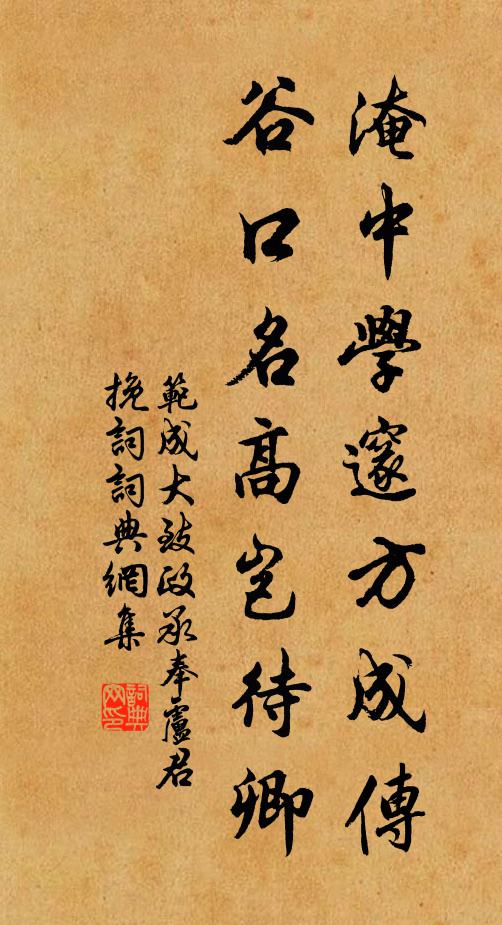 淹中學邃方成傳
谷口名高豈待卿
範成大致政承奉盧君
挽詞詞典網集
詞典
网印